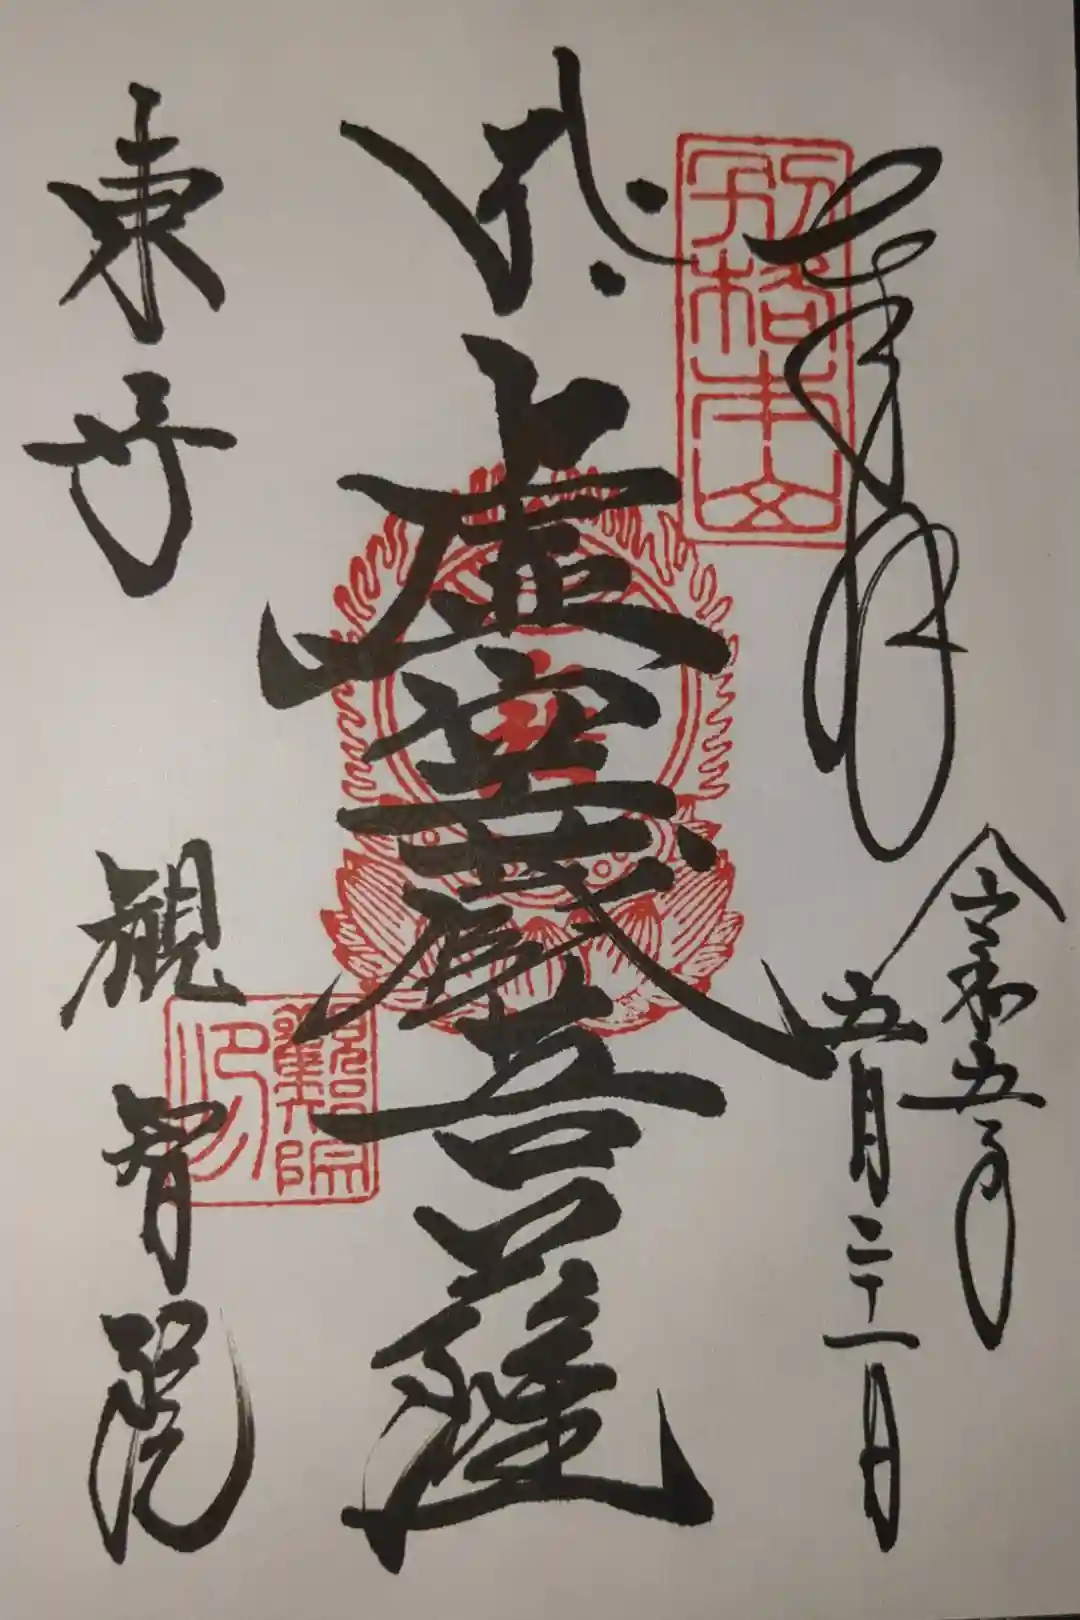 奉拝
令和五年
五月二十一日
別格本山
虚空蔵菩薩
東寺
観智院
観智院印